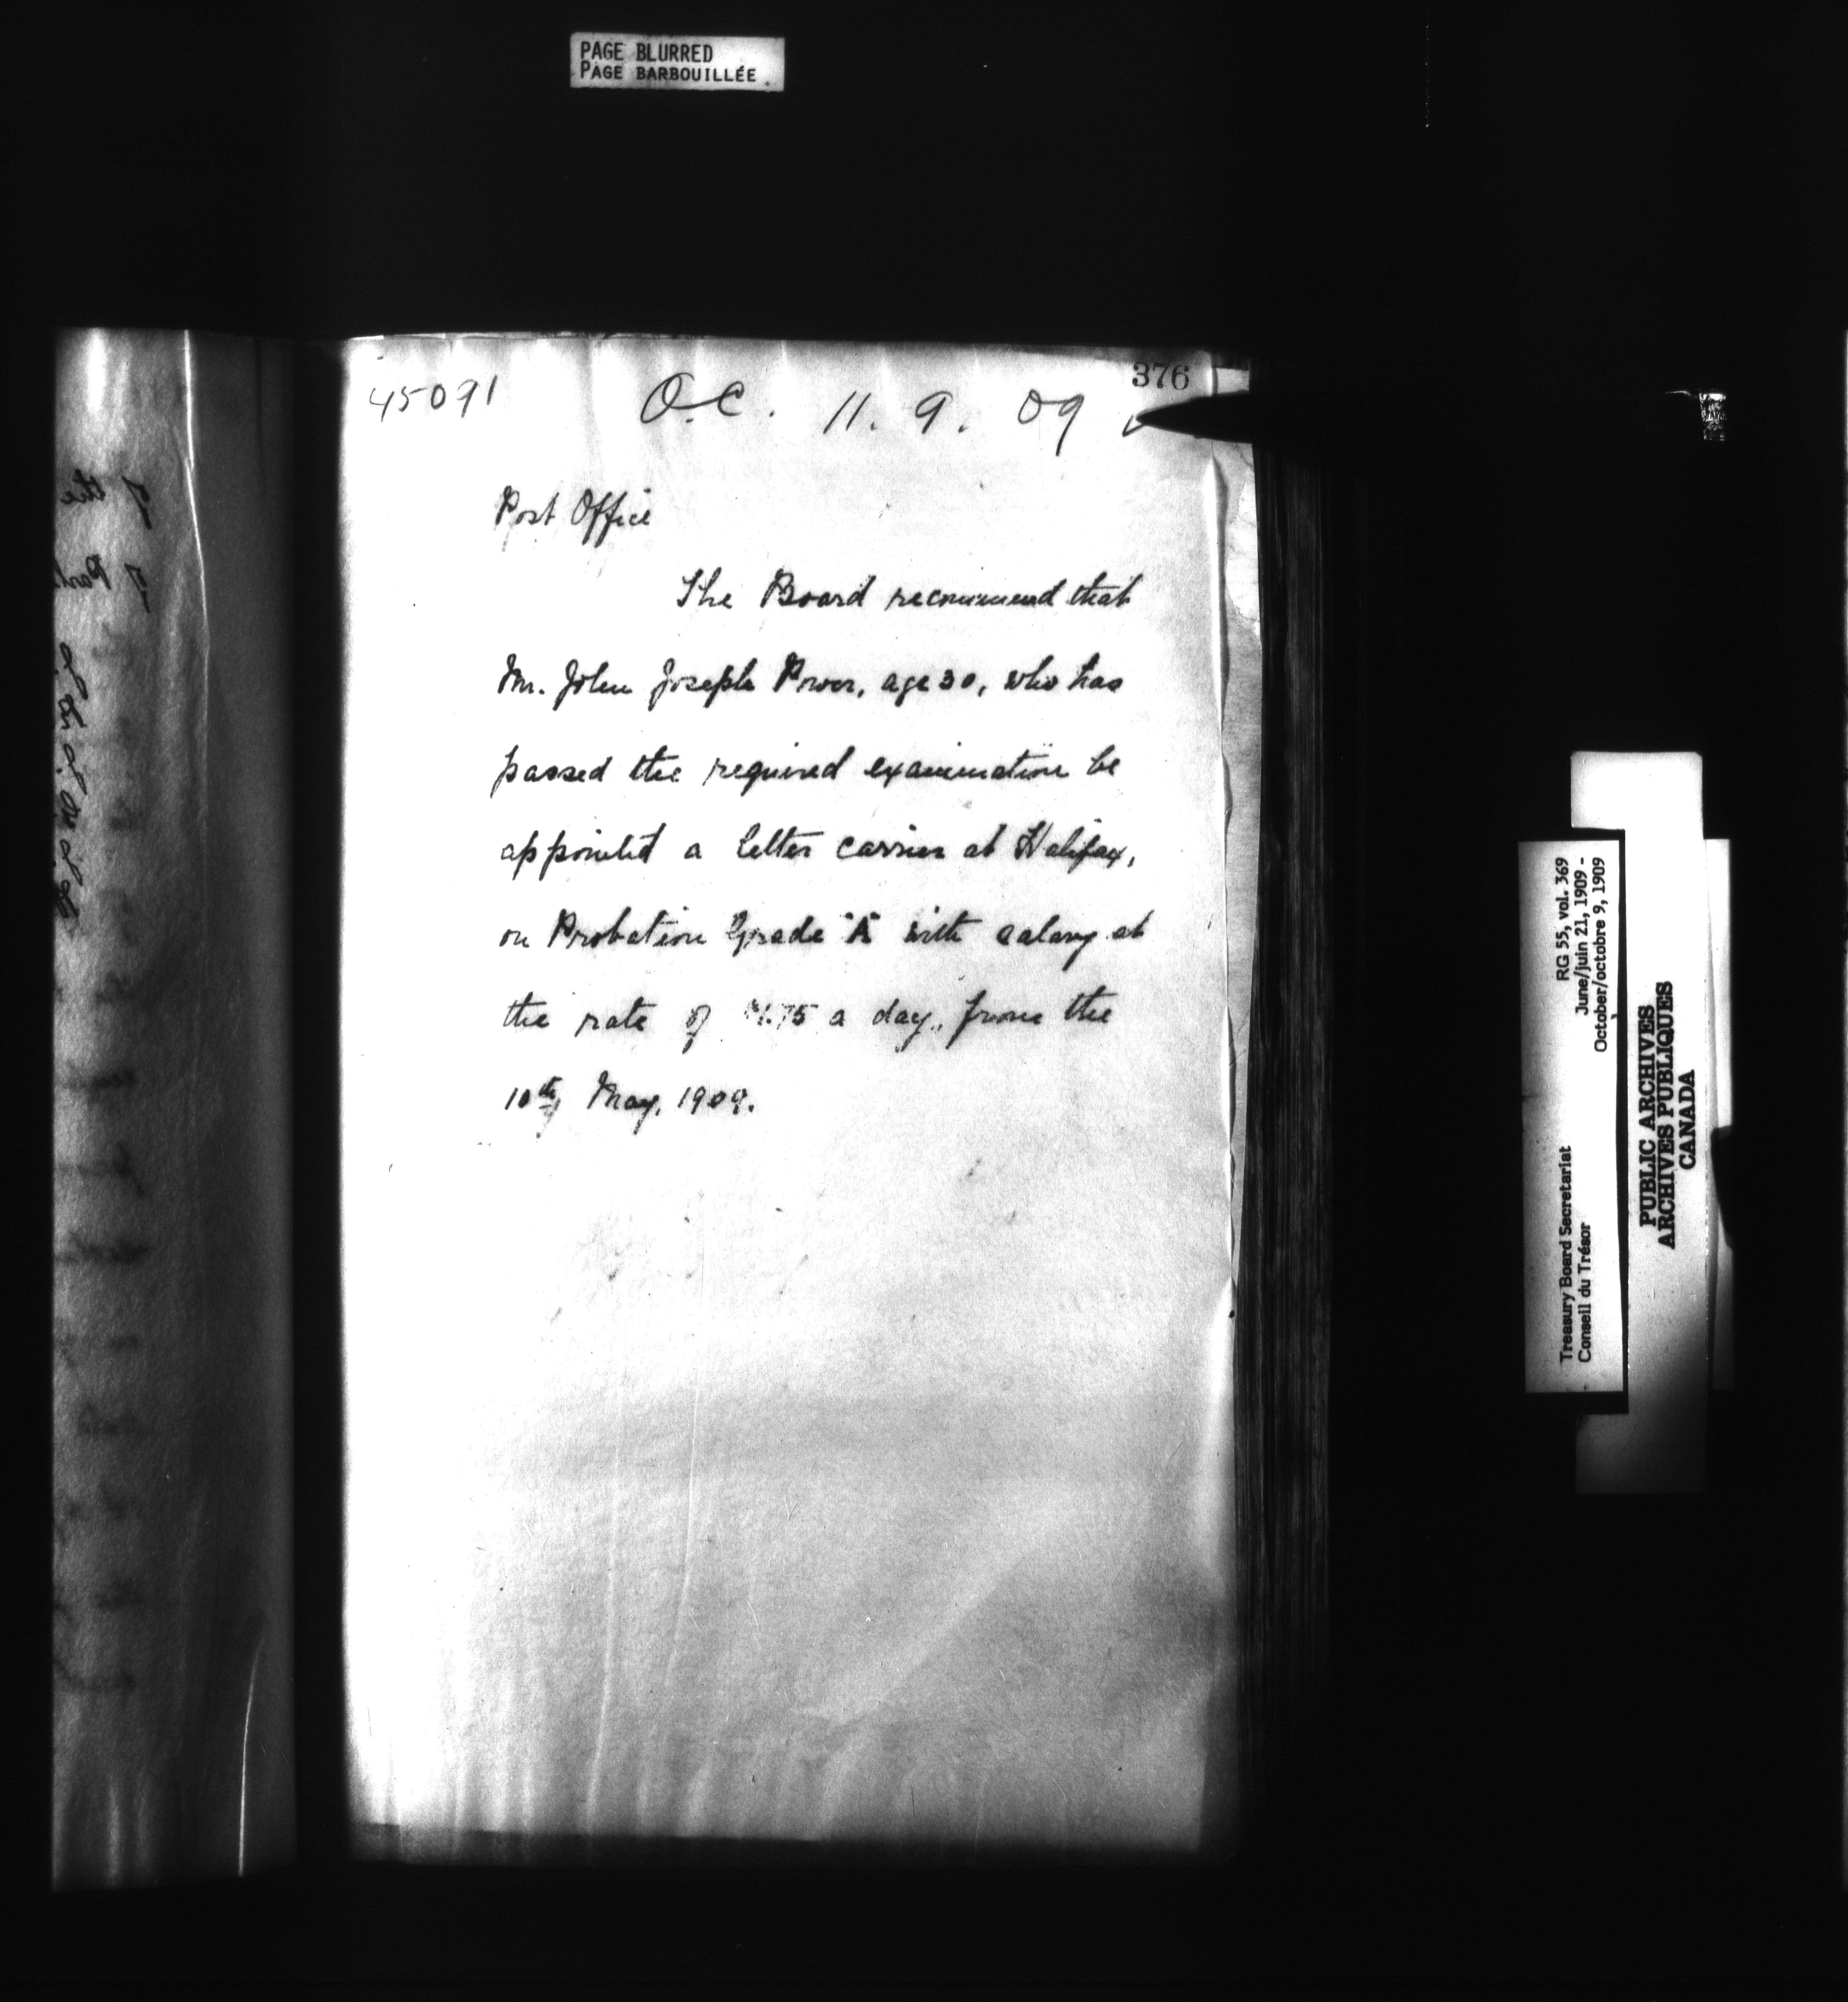 PAGE BLURRED
PAGE BARBOUILLÉE
376
45091
O.C. 11. 9. 09
Post Office
The Board recommend that
Mr. John Joseph Power, age 30, who has
passed the required examination be
appointed a letter carrier at Halifax,
on Probation Grade "A" with salary at
the rate of $1.75 a day, from the
10th, May, 1909.
RG 55, vol. 369
June/juin 21, 1909 -
October/octobre 9, 1909
Treasury Board Secretariat
Conseil du Trésor
PUBLIC ARCHIVES
ARCHIVES PUBLIQUES
CANADA